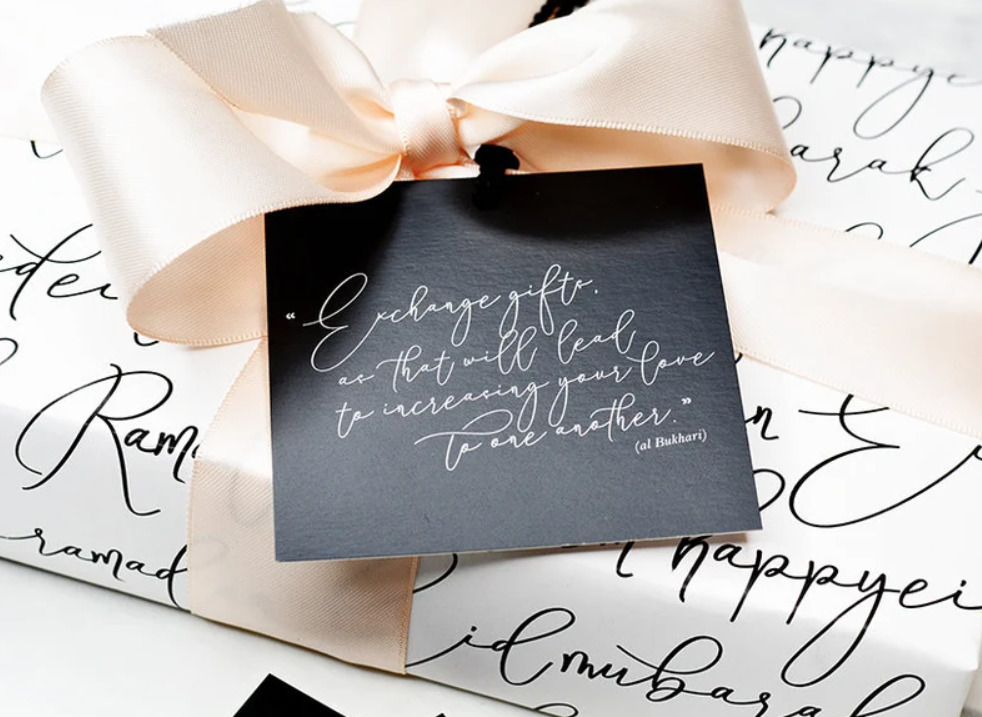 happye
arak
"Exchange gifts,
as that will lead
to increasing your love
to one another."
(al Bukhari)
Ram
ramad
happyei
idmubarak